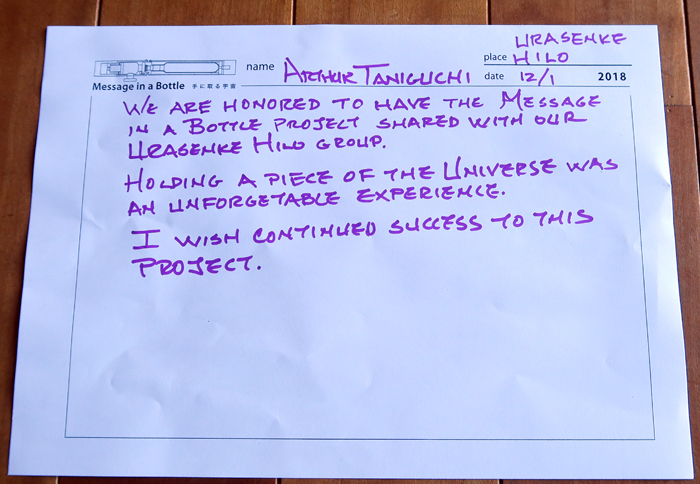 URASENKE
name ARTHUR TANIGUCHI place HILO
Message in a Bottle 手に取る宇宙 date 12/1 2018
WE ARE HONORED TO HAVE THE MESSAGE
IN A BOTTLE PROJECT SHARED WITH OUR
URASENKE HILO GROUP.
HOLDING A PIECE OF THE UNIVERSE WAS
AN UNFORGETABLE EXPERIENCE.
I WISH CONTINUED SUCCESS TO THIS
PROJECT.